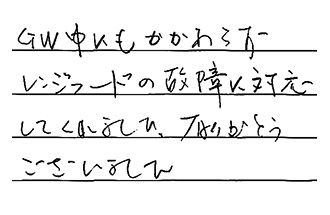 GW中にもかかわらず
レンジフードの故障に対応
してくれまして、ありがとう
ございました